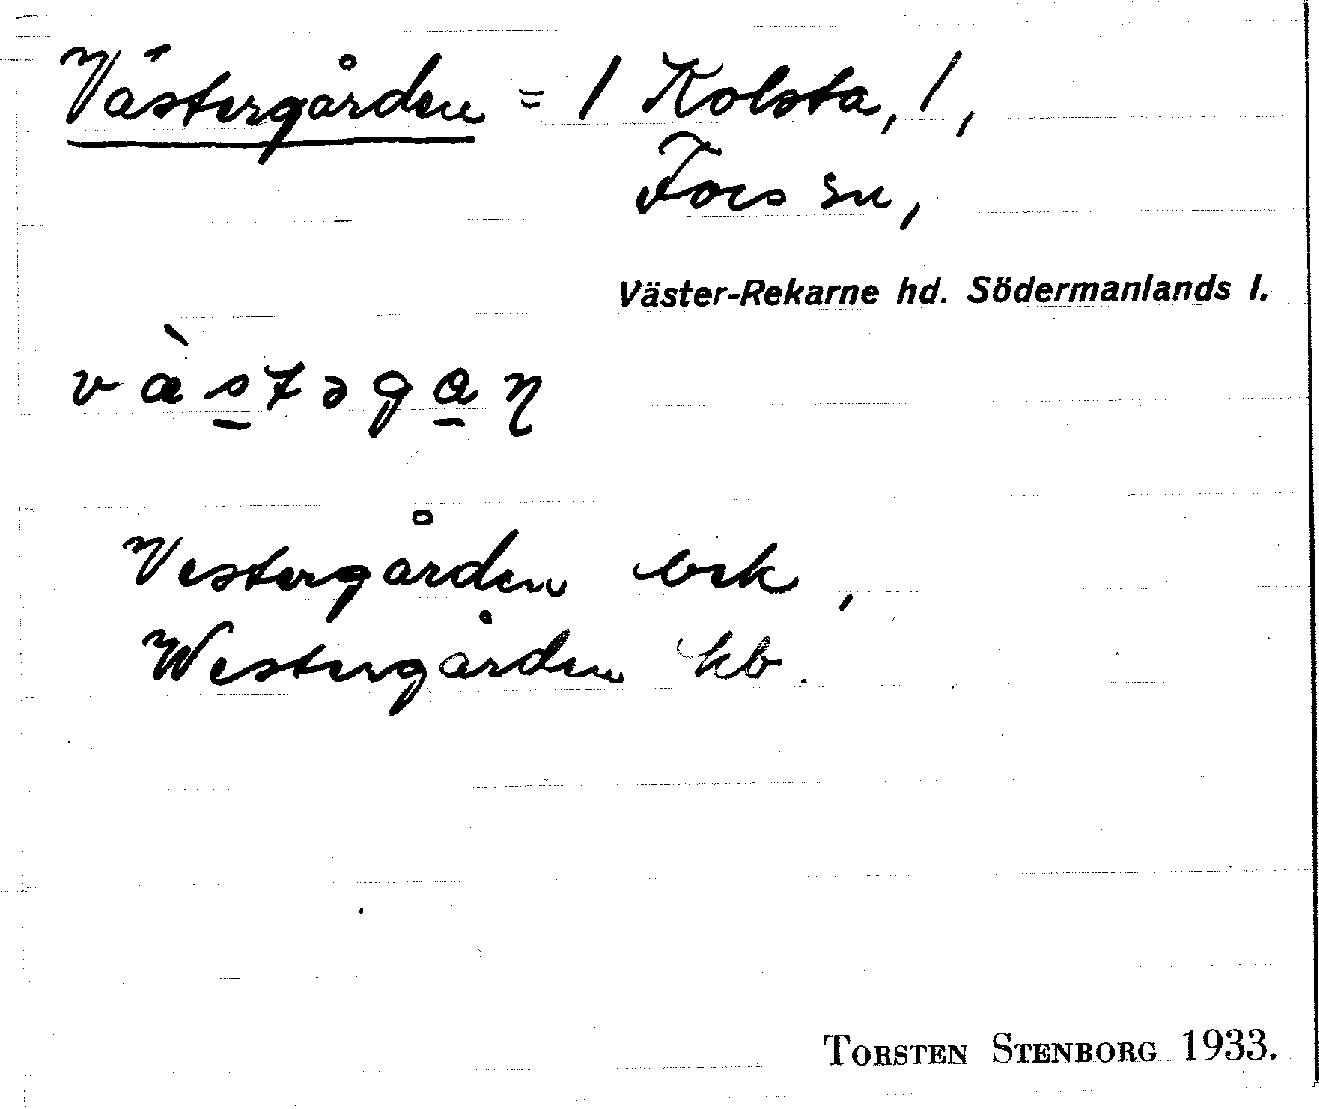 Västergården = 1 Kolsta, 1,
Fors sn,
Väster-Rekarne hd. Södermanlands l.
væ̀stəgɑṇ
Vestergården erk,
Westergården kb.
TORSTEN STENBORG 1933.